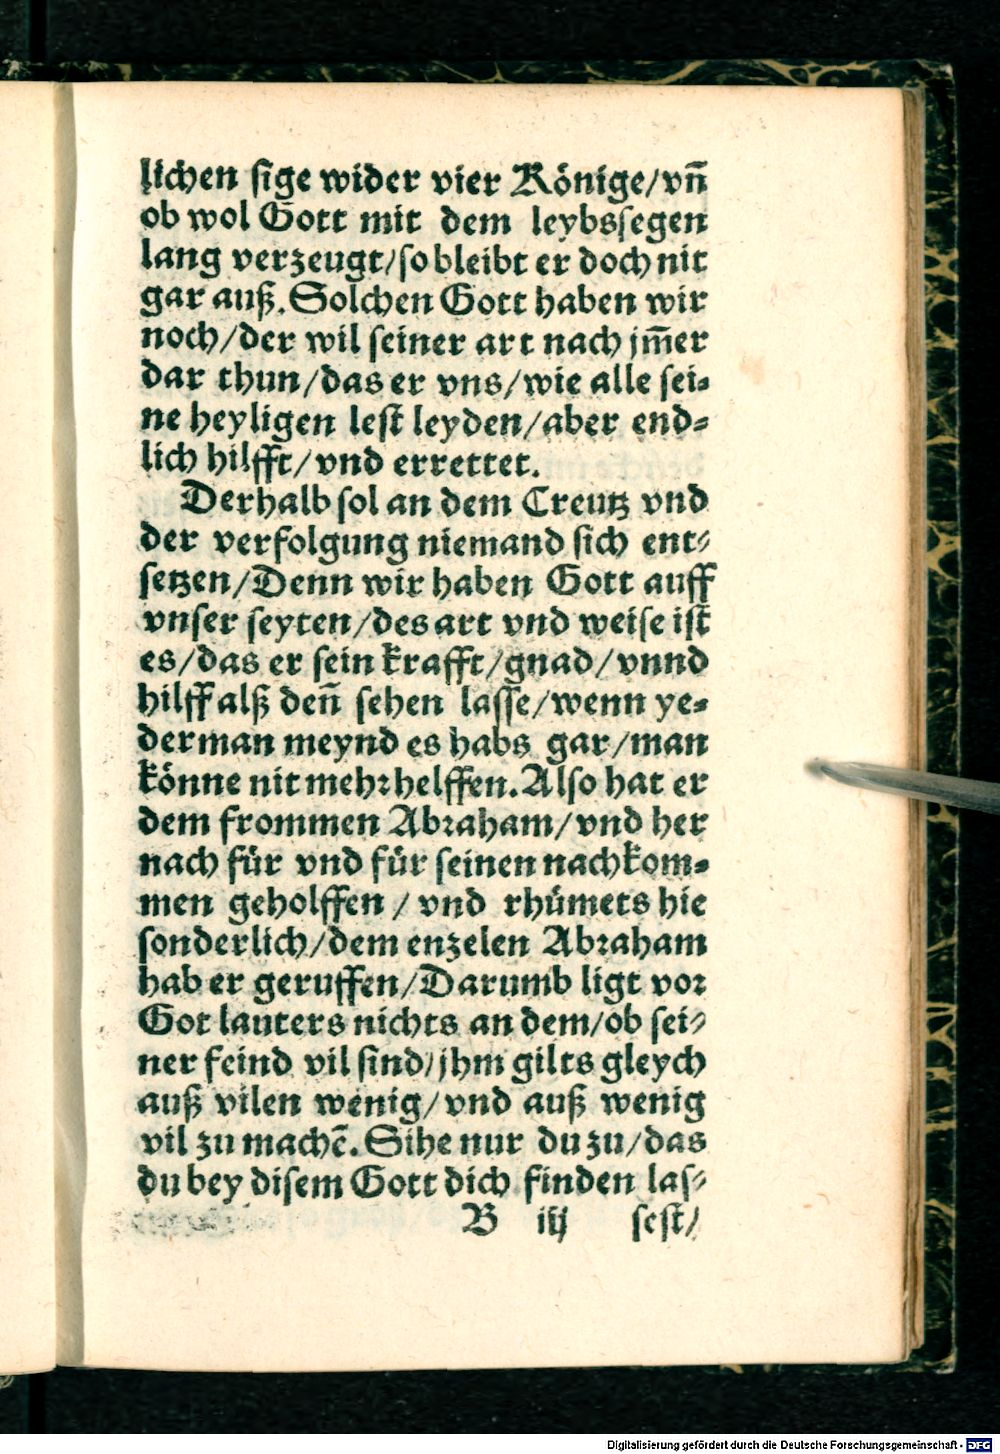 lichen sige wider vier Könige/vn̄
ob wol Gott mit dem leybssegen
lang verzeugt/so bleibt er doch nit
gar auß. Solchen Gott haben wir
noch/der wil seiner art nach jm̄er
dar thun/das er vns/wie alle sei⸗
ne heyligen lest leyden/aber end⸗
lich hilfft/vnd errettet.
Derhalb sol an dem Creutz vnd
der verfolgung niemand sich ent⸗
setzen/Denn wir haben Gott auff
vnser seyten/des art vnd weise ist
es/das er sein krafft/gnad/vnnd
hilff alß den̄ sehen lasse/wenn ye⸗
derman meynd es habs gar/man
könne nit mehr helffen. Also hat er
dem frommen Abraham/vnd her
nach für vnd für seinen nachkom⸗
men geholffen/vnd rhümets hie
sonderlich/dem enzelen Abraham
hab er geruffen/Darumb ligt vor
Got lauters nichts an dem/ob sei⸗
ner feind vil sind/jhm gilts gleych
auß vilen wenig/vnd auß wenig
vil zu machē. Sihe nur du zu/das
du bey disem Gott dich finden las⸗
B iij sest/
Digitalisierung gefördert durch die Deutsche Forschungsgemeinschaft - DFG